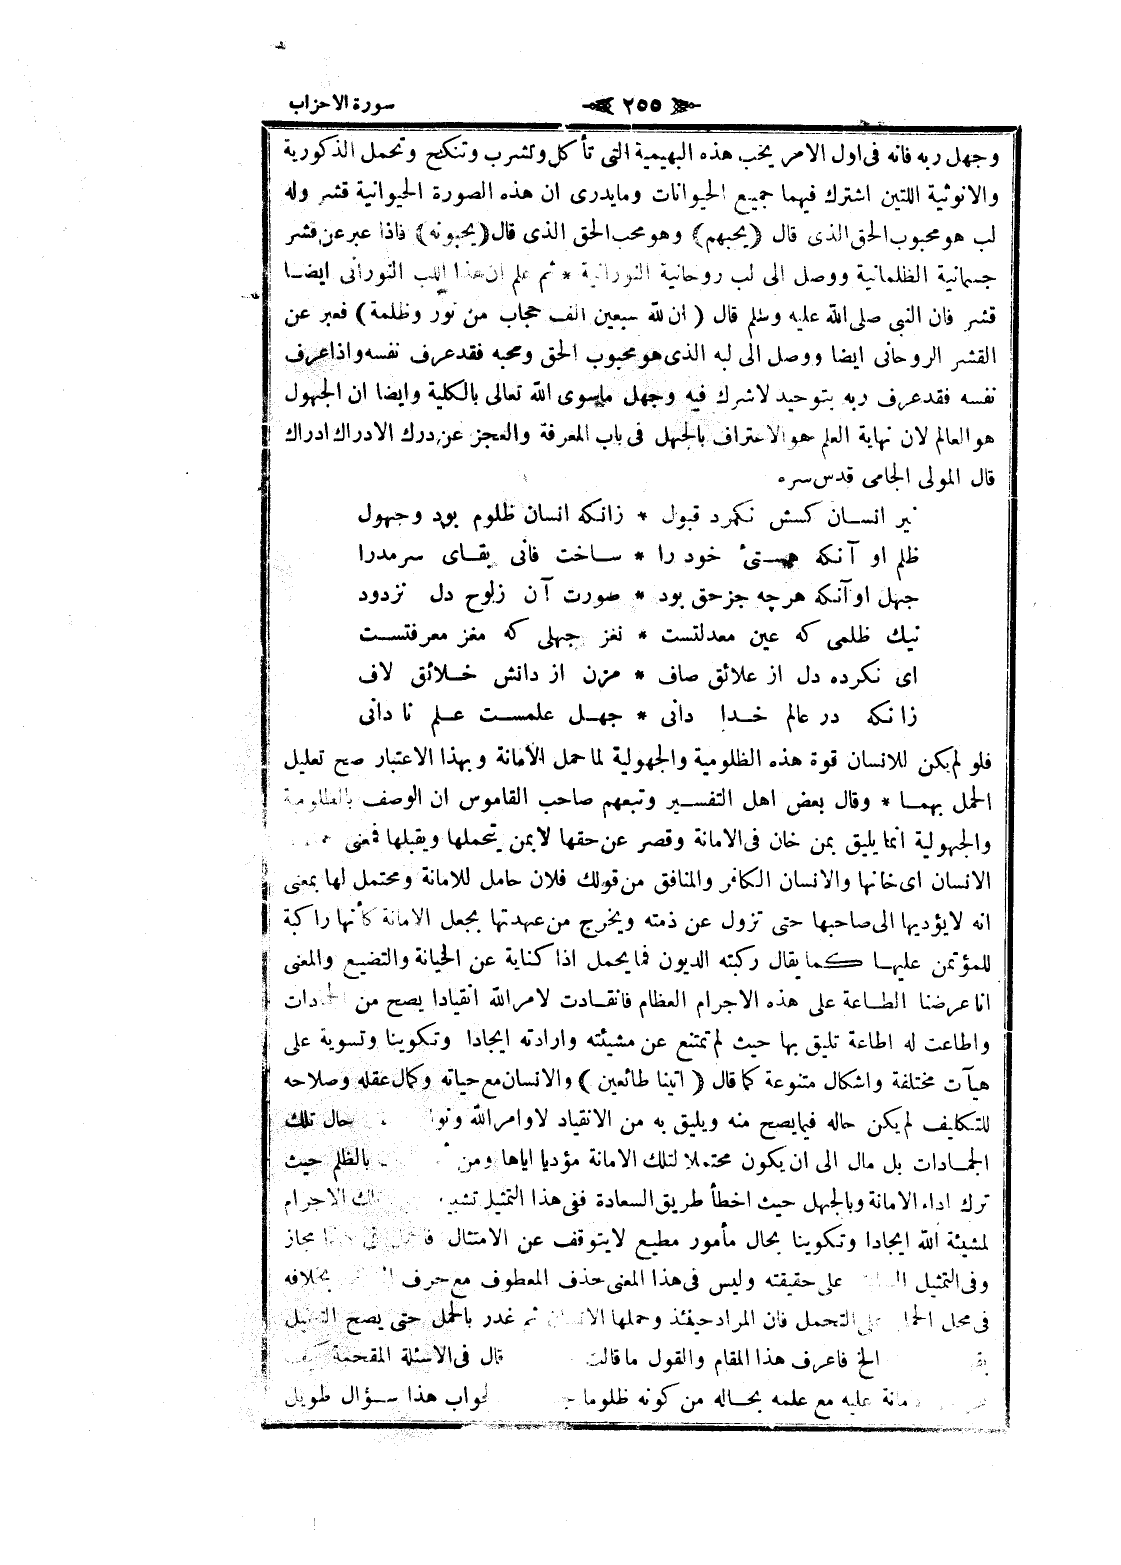 سورة الاحزاب
٢٥٥
وجهل ربه فانه فى اول الامر يحب هذه البهيمية التى تأكل وتشرب وتنكح وتحمل الذكورية
والانوثية اللتين اشترك فيهما جميع الحيوانات ومايدرى ان هذه الصورة الحيوانية قشر وله
لب هو محبوب الحق الذى قال (يحبهم) وهو محب الحق الذى قال (يحبونه) فاذا عبر عن قشر
جسمانية الظلمانية ووصل الى لب روحانية النورانية * ثم علم ان هذا اللب النورانى ايضا
قشر فان النبى صلى الله عليه وسلم قال (ان لله سبعين الف حجاب من نور وظلمة) فعبر عن
القشر الروحانى ايضا ووصل الى لبه الذى هو محبوب الحق ومحبه فقد عرف نفسه واذا عرف
نفسه فقد عرف ربه بتوحيد لاشرك فيه وجهل ماسوى الله تعالى بالكلية وايضا ان الجهول
هو العالم لان نهاية العلم هو الاعتراف بالجهل فى باب المعرفة والعجز عن درك الادراك ادراك
قال المولى الجامى قدس سره
غير انسان كسش نكرد قبول * زانكه انسان ظلوم بود وجهول
ظلم او آنكه هستئ خود را * ساخت فانى بقاى سرمدرا
جهل او آنكه هرچه جزحق بود * صورت آن زلوح دل نزدود
نيك ظلمى كه عين معدلتست * نغز جهلى كه مغز معرفتست
اى نكرده دل از علائق صاف * مزن از دانش خلائق لاف
زانكه در عالم خدا دانى * جهل علمست علم نا دانى
فلو لم يكن للانسان قوة هذه الظلومية والجهولية لما حمل الأمانة وبهذا الاعتبار صح تعليل
الحمل بهما * وقال بعض اهل التفسير وتبعهم صاحب القاموس ان الوصف بالظلومية
والجهولية انما يليق بمن خان فى الامانة وقصر عن حقها لابمن يتحملها ويقبلها فمعنى
الانسان اى خانها والانسان الكافر والمنافق من قولك فلان حامل للامانة ومحتمل لها بمعنى
انه لايؤديها الى صاحبها حتى تزول عن ذمته ويخرج من عهدتها بجعل الامانة كأنها راكبة
للمؤتمن عليها كما يقال ركبته الديون فما يحمل اذا كناية عن الخيانة والتضيع والمعنى
انا عرضنا الطاعة على هذه الاجرام العظام فانقادت لامر الله انقيادا يصح من
واطاعت له اطاعة تليق بها حيث لم تمتنع عن مشيئته وارادته ايجادا وتكوينا وتسوية على
هيآت مختلفة واشكال متنوعة كما قال (اتينا طائعين) والانسان مع حياته وكمال عقله وصلاحه
للتكليف لم يكن حاله فيما يصح منه ويليق به من الانقياد لاوامر الله حال تلك
الجمادات بل مال الى ان يكون محتملا لتلك الامانة مؤديا اياها ومن بالظلم حيث
ترك اداء الامانة وبالجهل حيث اخطأ طريق السعادة ففى هذا التمثيل الاجرام
لمشيئة الله ايجادا وتكوينا بحال مأمور مطيع لايتوقف عن الامتثال مجاز
وفى التمثيل على حقيقته وليس فى هذا المعنى حذف المعطوف مع حرف بخلافه
فى محل التحمل فان المراد حينئذ وحملها الانسان ثم غدر بالحمل حتى يصح التعليل
الخ فاعرف هذا المقام والقول ماقالت قال فى الاسئلة المقحمة كيف
عليه مع علمه بحاله من كونه ظلوما هذا سؤال طويل